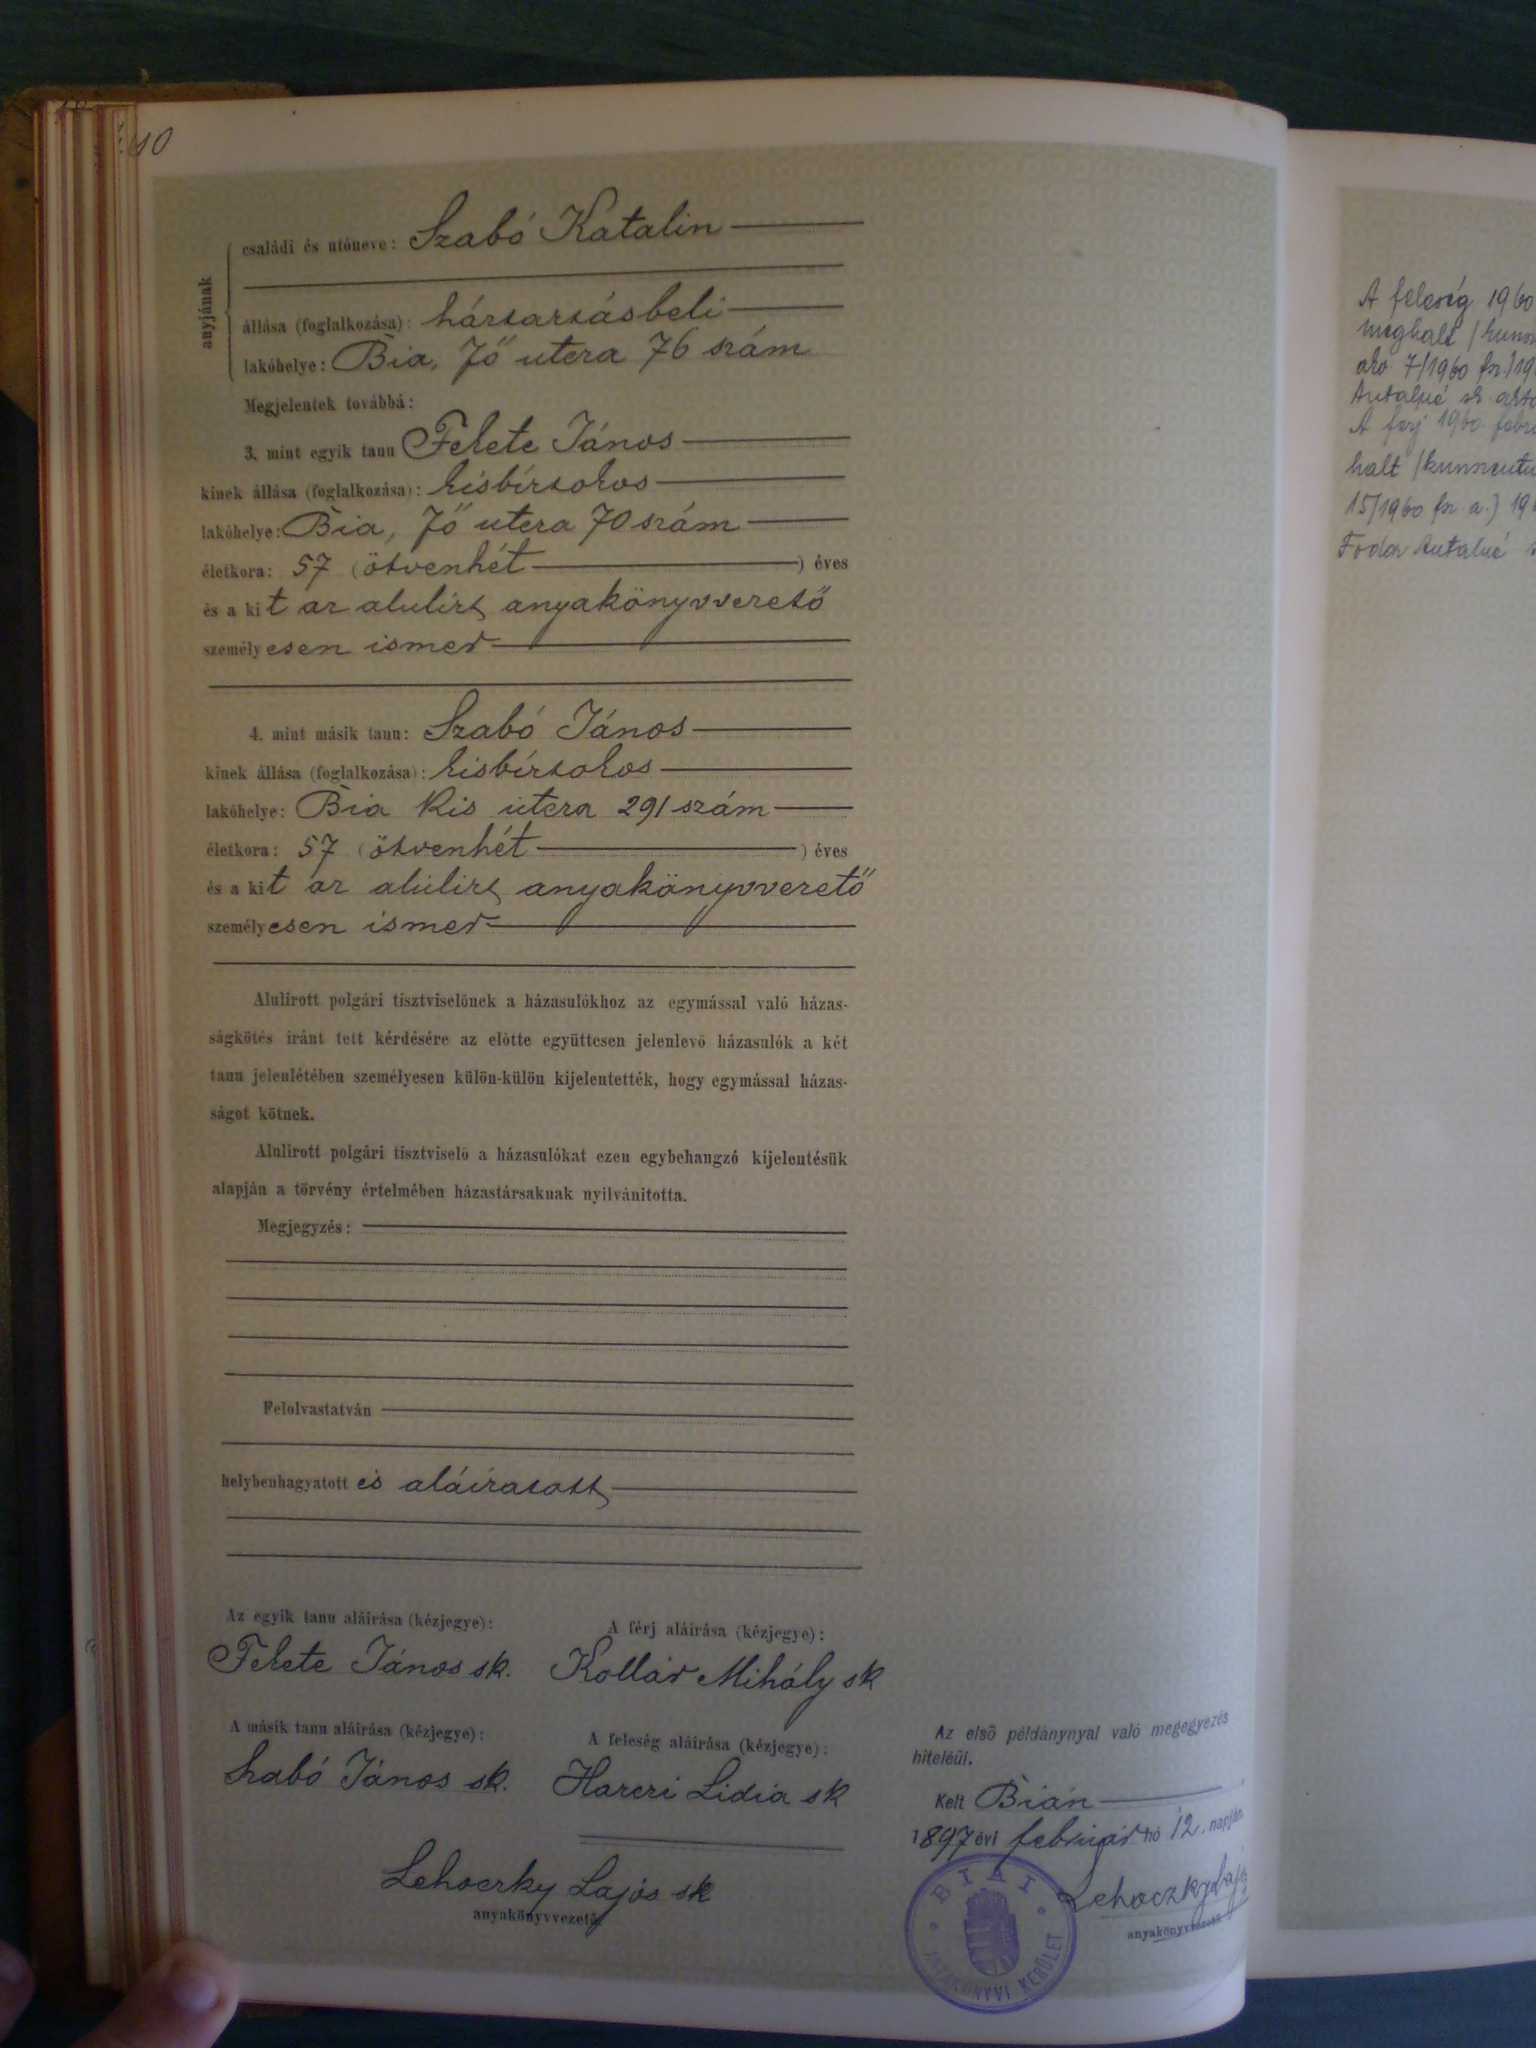 10
anyjának
családi és utóneve: Szabó Katalin
állása (foglalkozása): háztartásbeli
lakóhelye: Bia, Fő utcza 76 szám
Megjelentek továbbá:
3. mint egyik tanu Fekete János
kinek állása (foglalkozása): kisbirtokos
lakóhelye: Bia, Fő utcza 70 szám
életkora: 57 (ötvenhét) éves
és a kit az alulirt anyakönyvvezető
személyesen ismer
4. mint másik tanu: Szabó János
kinek állása (foglalkozása): kisbirtokos
lakóhelye: Bia Kis utcza 291 szám
életkora: 57 (ötvenhét) éves
és a kit az alulirt anyakönyvvezető
személyesen ismer
Alulirott polgári tisztviselőnek a házasulókhoz az egymással való házas-
ságkötés iránt tett kérdésére az előtte együttesen jelenlevő házasulók a két
tanu jelenlétében személyesen külön-külön kijelentették, hogy egymással házas-
ságot kötnek.
Alulirott polgári tisztviselő a házasulókat ezen egybehangzó kijelentésük
alapján a törvény értelmében házastársaknak nyilvánitotta.
Megjegyzés:
Felolvastatván
helybenhagyatott és aláiratott
Az egyik tanu aláirása (kézjegye):
Fekete János sk.
A férj aláirása (kézjegye):
Kollár Mihály sk
A másik tanu aláirása (kézjegye):
Szabó János sk.
A feleség aláirása (kézjegye):
Harczi Lidia sk
Lehoczky Lajos sk
anyakönyvvezető
Az első példánynyal való megegyezés
hiteléül.
Kelt Bián
1897 évi február hó 12. napján
Lehoczky Lajos
anyakönyvvezető
BIAI
ANYAKÖNYVI KERÜLET
A feleség 1960
meghalt
7/1960 1
Antalné
A férj 1960. febr
halt
15/1960 19
Fodor Antalné